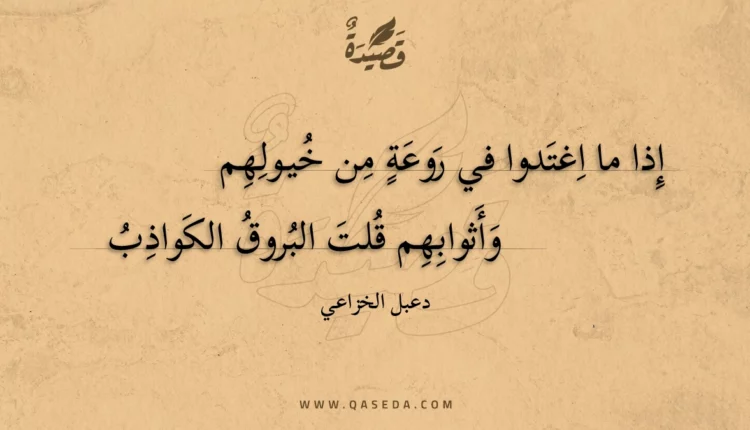 قَصِيْدَةٌ
إِذا ما اِغتَدوا في رَوعَةٍ مِن خُيولِهِم
وَأَثوابِهِم قُلتَ البُروقُ الكَواذِبُ
دعبل الخزاعي
WWW.QASEDA.COM